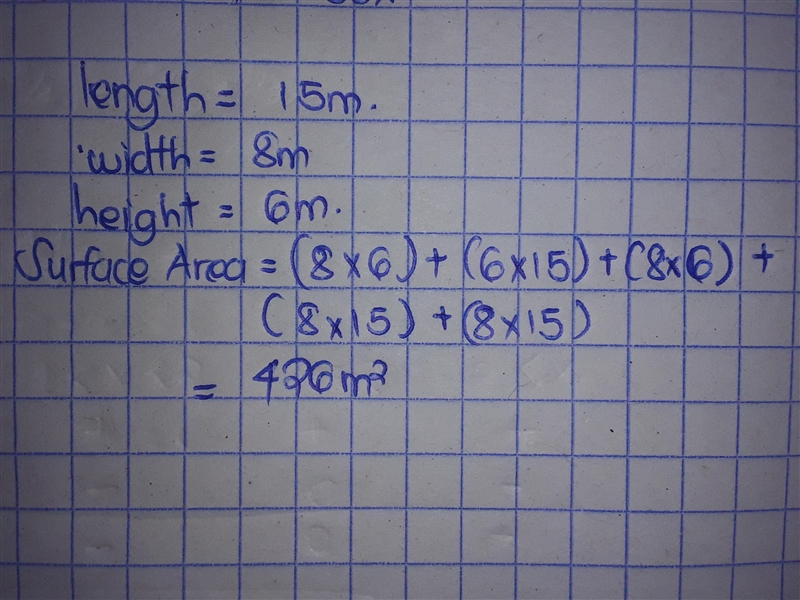 length = 15m.
width = 8m
height = 6m.
Surface Area = (8x6) + (6x15) + (8x6) +
(8x15) + (8x15)
= 426m²